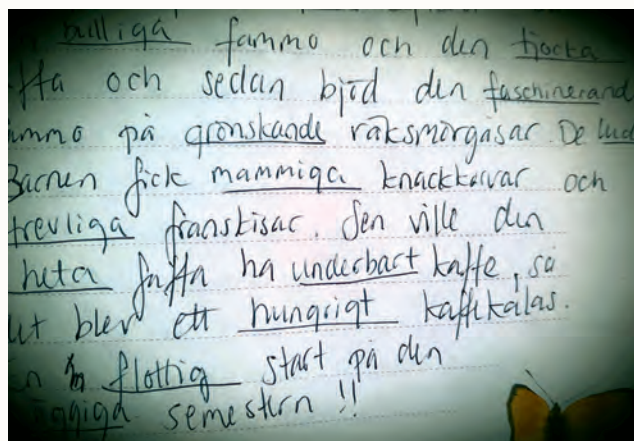 bulliga fammo och den tjocka
och sedan bjöd den faschinerand
ammo på grönskande räksmörgåsar. De lud
Barnen fick mammiga knackkorvar och
trevliga franskisar. Sen ville den
heta faffa ha underbart kaffe, så
ut blev ett hungrigt kaffikalas.
flottig start på den
semestern !!